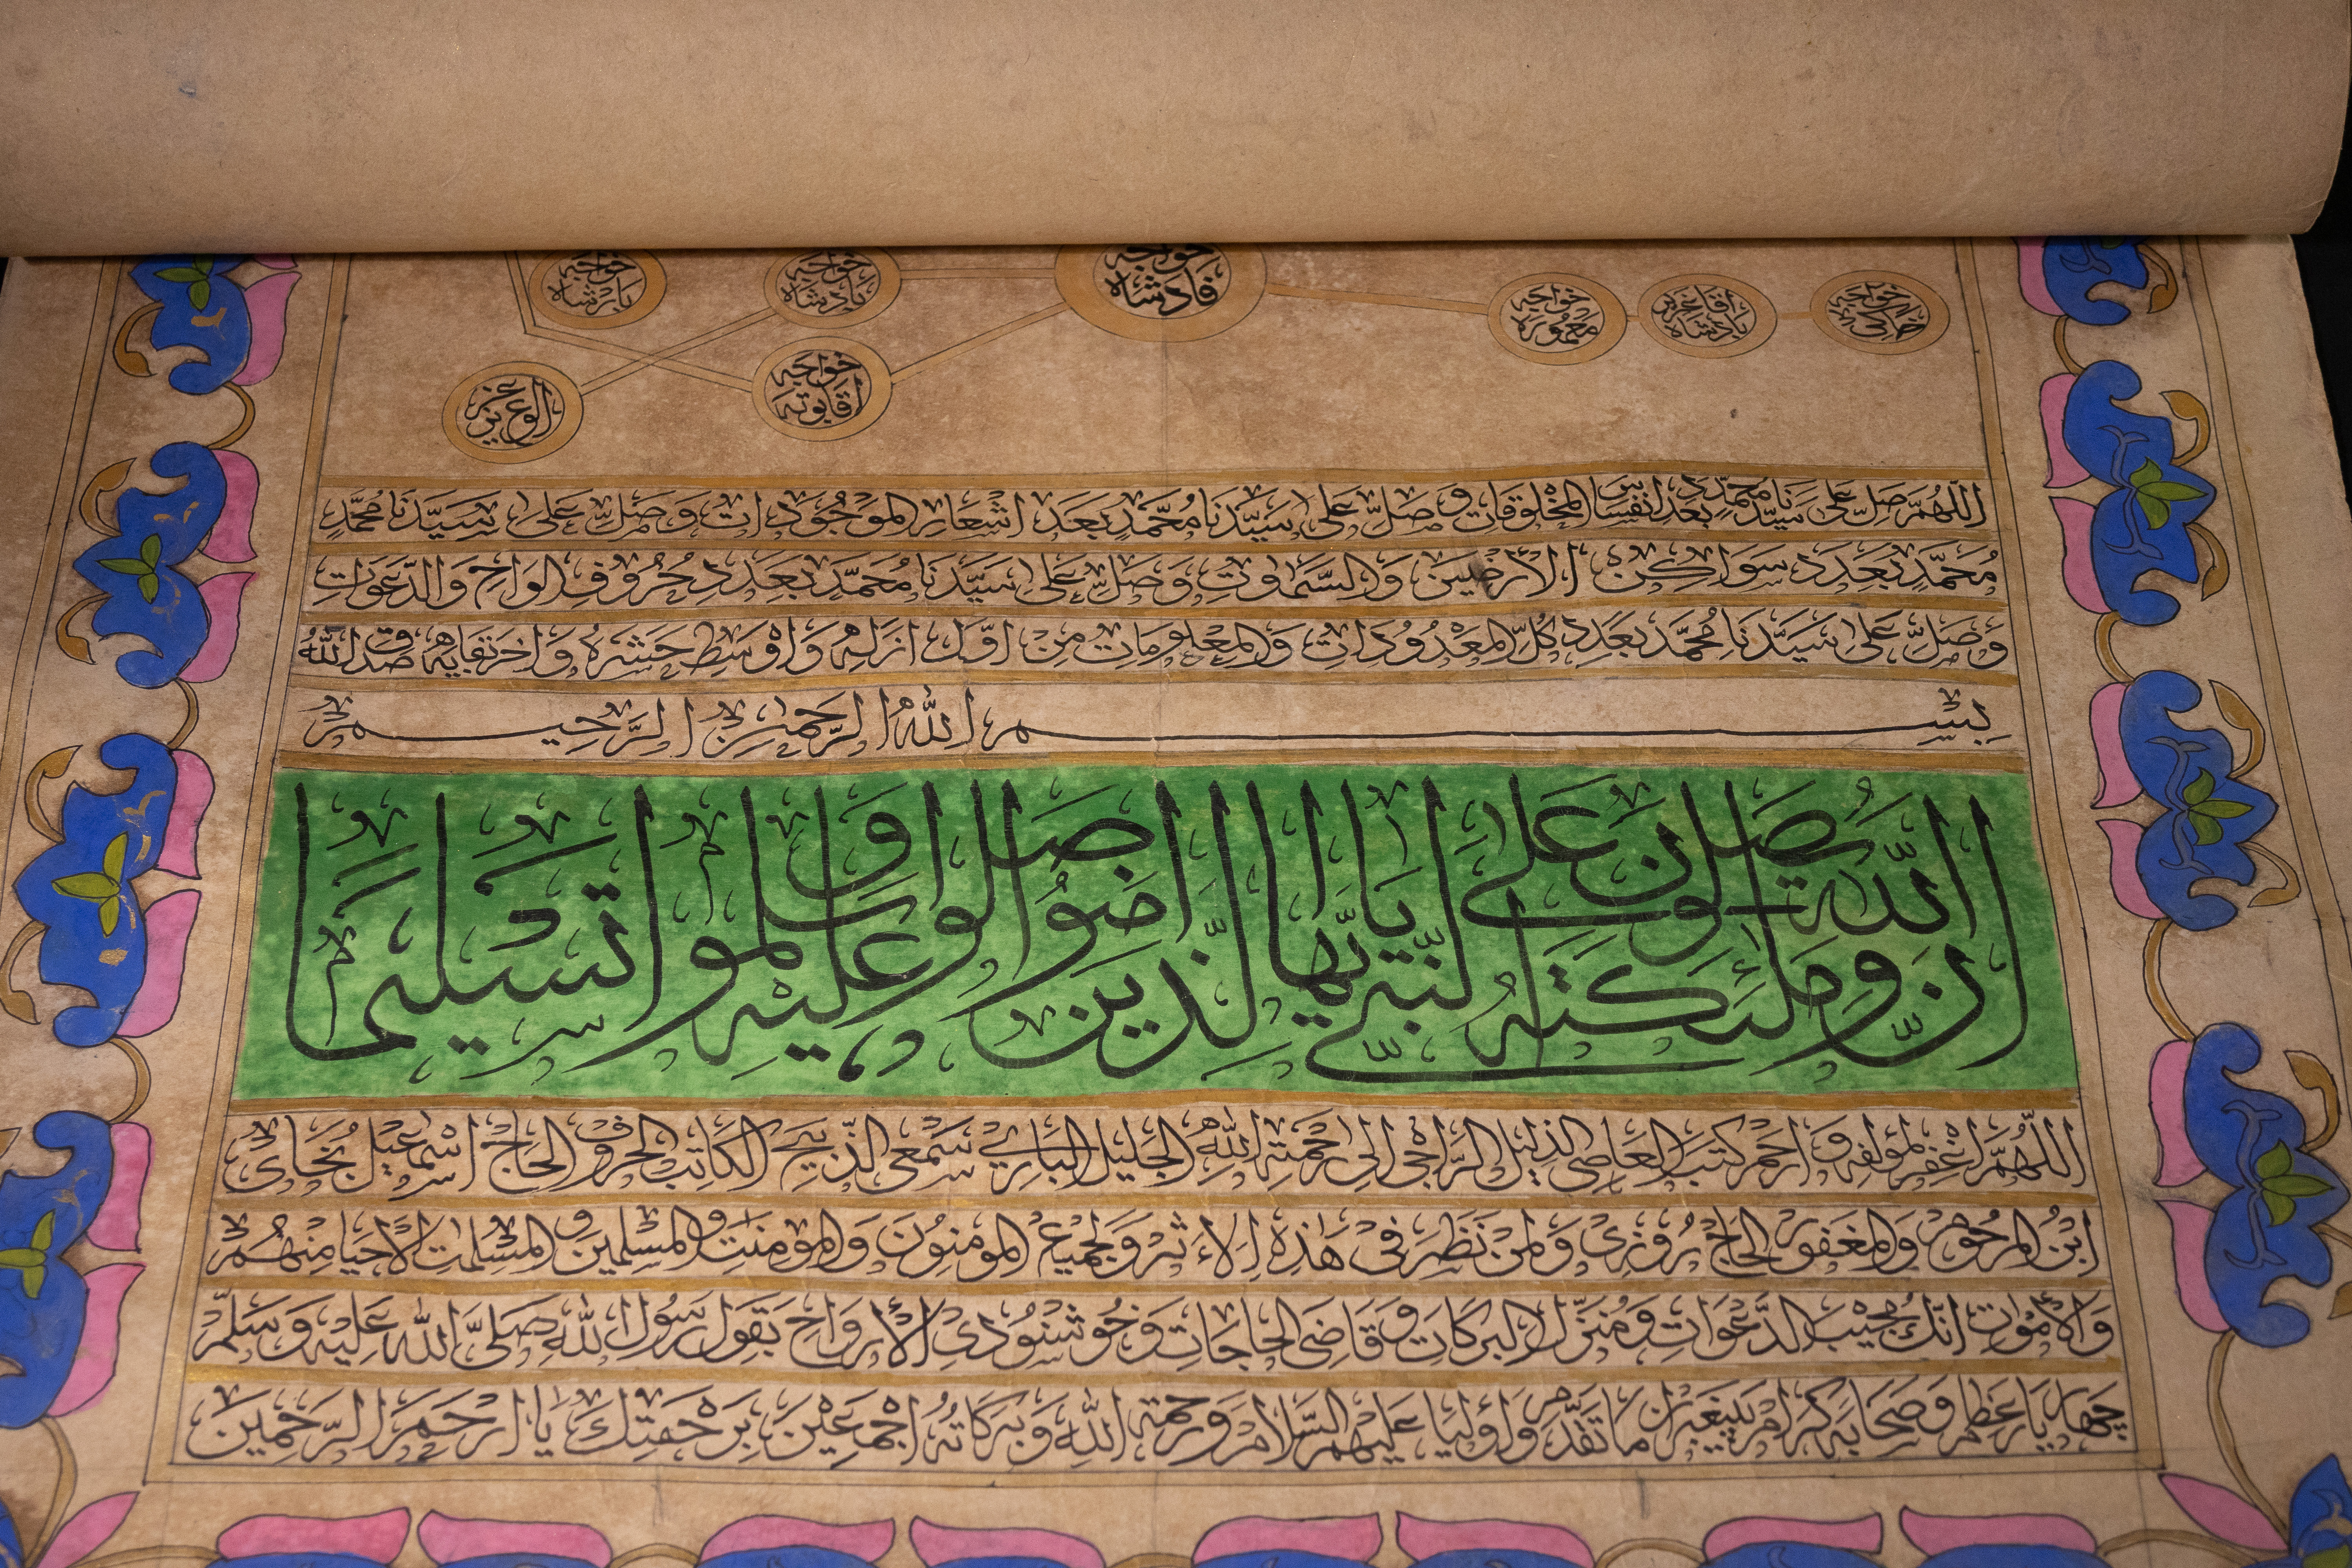 خواجه قادشاه
خواجه پادشاه
خواجه بابرشاه
اقا عزیز پادشاه
خواجه اقابوته
الوغ عزیز
اللّٰهُمَّ صَلِّ عَلىٰ سَيِّدِنَا مُحَمَّدٍ بعدد انفس المخلوقات وَصَلِّ عَلىٰ سَيِّدِنَا مُحَمَّدٍ بعدد اشعار الموجودات وَصَلِّ عَلىٰ سَيِّدِنَا مُحَمَّدٍ
مُحَمَّدٍ بعدد سواكن الأرضين والسمٰوات وَصَلِّ عَلىٰ سَيِّدِنَا مُحَمَّدٍ بعدد حروف الواح والدعوات
وَصَلِّ عَلىٰ سَيِّدِنَا مُحَمَّدٍ بعدد كل المعدودات والمعلومات من اوّل ازله واوسط حشره واخر بقايه صدق الله
بسم الله الرحمن الرحيم
ان الله وملئكته يصلون على النبي يايها الذين امنوا صلوا عليه وسلموا تسليما
اللّٰهُمَّ اغفر لمؤلفه وارحم كتب العاصي الذليل الراجى الى رحمته الله الجليل الباري سمعى الذبيح الكاتب الحروف الحاج اسماعيل بخارى
ابن المرحوم والمغفور الحاج روزى ولمن نظر فى هٰذه الاثر ولجميع المومنون والمومنٰت والمسلمين والمسلمٰت الاحيا منهم
والأموات انك مجيب الدعوات ومنزل البركات وقاضى الحاجات وخوشنودى الأرواح بقول رسول الله صلى الله عليه وسلم
چهار يار عظام وصحابه كرام پيغبران ما تقدم واوليا عليهم السلام ورحمته الله وبركاته اجمعين برحمتك يا ارحم الرحمين